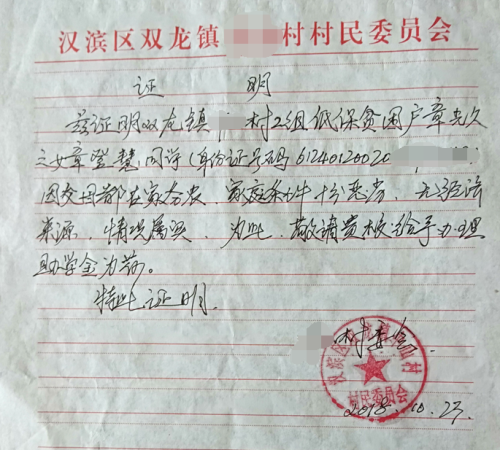 汉滨区双龙镇 村村民委员会
证 明
兹证明双龙镇 村2组低保贫困户章先次
之女章登慧同学(身份证号码61240120020
因父母都在家务农、家庭条件十分恶劣、无经济
来源、情况属实、为此、敬请贵校给予办理
助学金为荷。
特此证明.
村委会.
汉滨区双龙镇 村
村民委员会
2018.10.27.